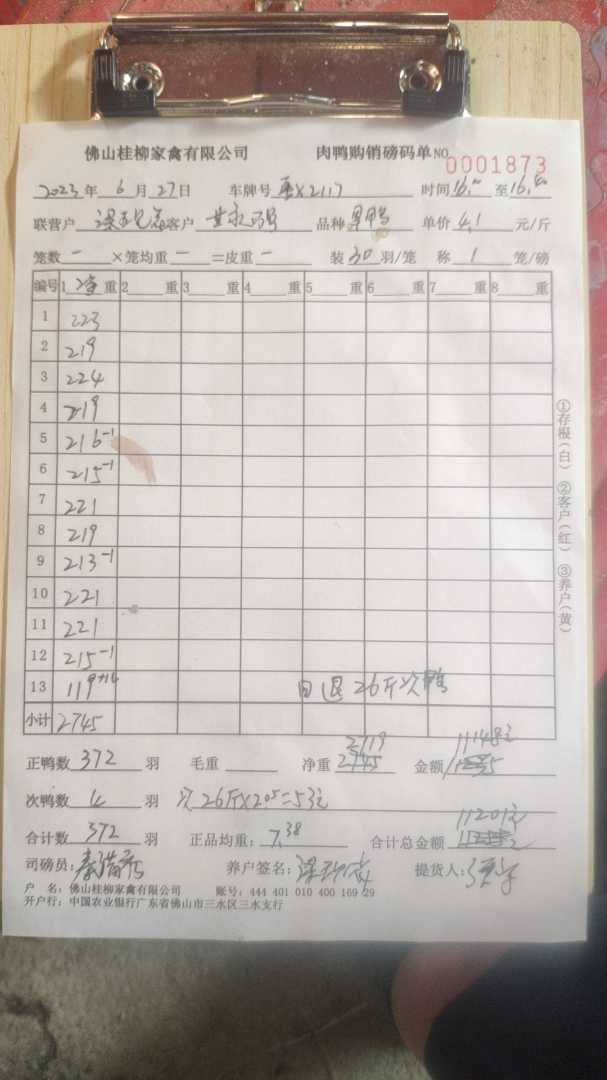 佛山桂柳家禽有限公司 肉鸭购销磅码单 NO 0001873
2023年 6月 27日 车牌号 X2117 时间 16: 至 16:40
联营户 客户 黄 品种 鸭 单价 4.1 元/斤
笼数 一 ×笼均重 一 =皮重 一 装 30 羽/笼 称 1 笼/磅
编号 1 净 重 2 重 3 重 4 重 5 重 6 重 7 重 8 重
1 223
2 219
3 224
4 219
5 216-1
6 215-1
7 221
8 219
9 213-1
10 221
11 221
12 215-1
13 119+14 退26斤次鸭
小计 2745
①存根(白) ②客户(红) ③养户(黄)
正鸭数 372 羽 毛重 净重 2745 2719 金额 11148元
次鸭数 4 羽 次26斤×2.05=53元
合计数 372 羽 正品均重: 7.38 合计总金额 11201元
司磅员: 秦 养户签名: 梁 提货人:
户 名: 佛山桂柳家禽有限公司 账号: 444 401 010 400 169 29
开户行: 中国农业银行广东省佛山市三水区三水支行